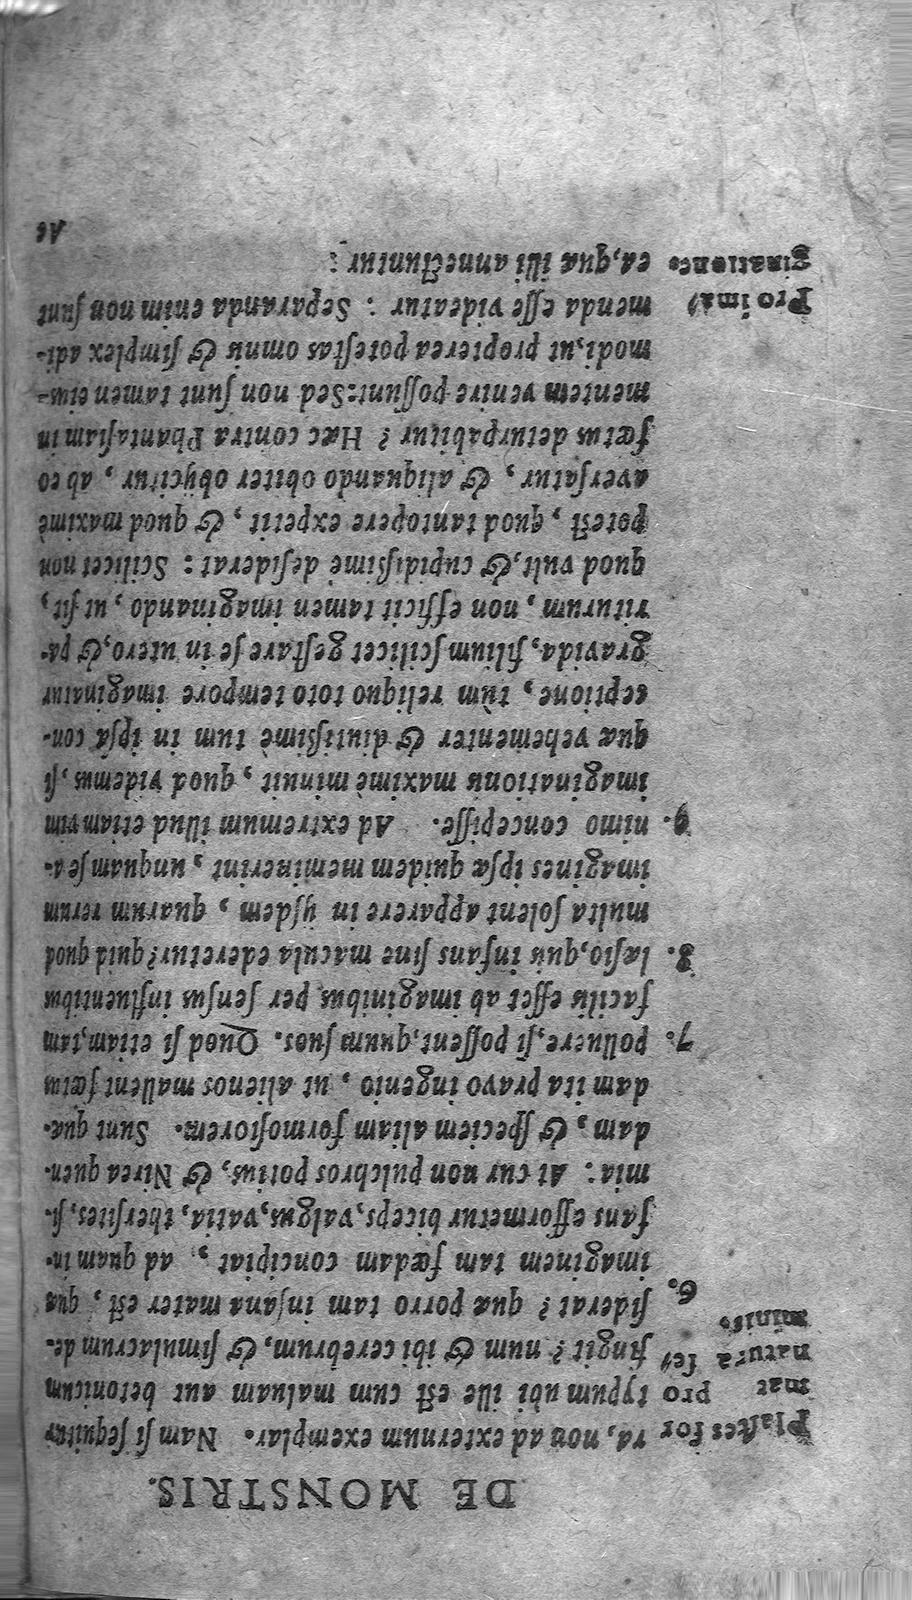 DE MONSTRIS.
Plastes for
mat pro
natura se,
minis.
ra, non ad externum exemplar. Nam si sequitur
typum ubi ille est cum maluam aut betonicam
fingit? num & ibi cerebrum, & simulacrum de-
siderat? quæ porro tam insana mater est, quæ
6.
imaginem tam fœdam concipiat, ad quam in-
fans efformetur biceps, valgus, vatia, thersites, si-
mia: At cur non pulchros potius, & Nirea quen-
dam, & speciem aliam formosiorem. Sunt quæ-
dam ita pravo ingenio, ut alienos mallent fœtus
7. polluere, si possent, quam suos. Quod si etiam, tam
facilis esset ab imaginibus per sensus influentibus
8. læsio, quis infans sine macula ederetur? quid quod
multa solent apparere in ijsdem, quarum rerum
imagines ipsæ quidem meminerint, unquam se a-
9. nimo concepisse. Ad extremum illud etiam vim
imaginationis maximè minuit, quod videmus, si
quæ vehementer & diutissimè tum in ipsa con-
ceptione, tùm reliquo toto tempore imaginatur
gravida, filium scilicet gestare se in utero, & pa-
riturum, non efficit tamen imaginando, ut sit,
quod vult, & cupidissimè desiderat: Scilicet non
potest, quod tantopere expetit, & quod maximè
aversatur, & aliquando obiter obijcitur, ab eo
fœtus deturpabitur? Hæc contra Phantasiam in
mentem venire possunt: Sed non sunt tamen eius-
modi, ut propterea potestas omnis & simplex adi-
Pro ima,
ginatione.
menda esse videatur: Separanda enim non sunt
ea, quæ illi annectuntur:
Ac